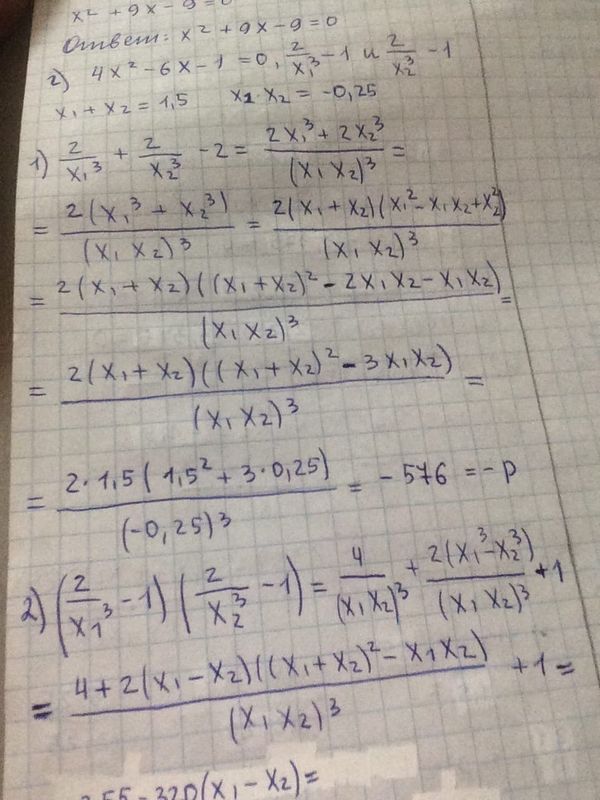 x² + 9x - 9 = 0
Ответ: x² + 9x - 9 = 0
2) 4x² - 6x - 1 = 0, 2/x₁³ - 1 и 2/x₂³ - 1
x₁ + x₂ = 1,5 x₁ · x₂ = -0,25
1) 2/x₁³ + 2/x₂³ - 2 = (2x₁³ + 2x₂³)/(x₁x₂)³ =
= 2(x₁³ + x₂³)/(x₁x₂)³ = 2(x₁ + x₂)(x₁² - x₁x₂ + x₂²)/(x₁x₂)³
= 2(x₁ + x₂)((x₁ + x₂)² - 2x₁x₂ - x₁x₂)/(x₁x₂)³ =
= 2(x₁ + x₂)((x₁ + x₂)² - 3x₁x₂)/(x₁x₂)³ =
= 2·1,5(1,5² + 3·0,25)/(-0,25)³ = -576 = -p
2) (2/x₁³ - 1)(2/x₂³ - 1) = 4/(x₁x₂)³ + 2(x₁³ - x₂³)/(x₁x₂)³ + 1
= (4 + 2(x₁ - x₂)((x₁ + x₂)² - x₁x₂)/(x₁x₂)³ + 1 =
55 - 320(x₁ - x₂) =